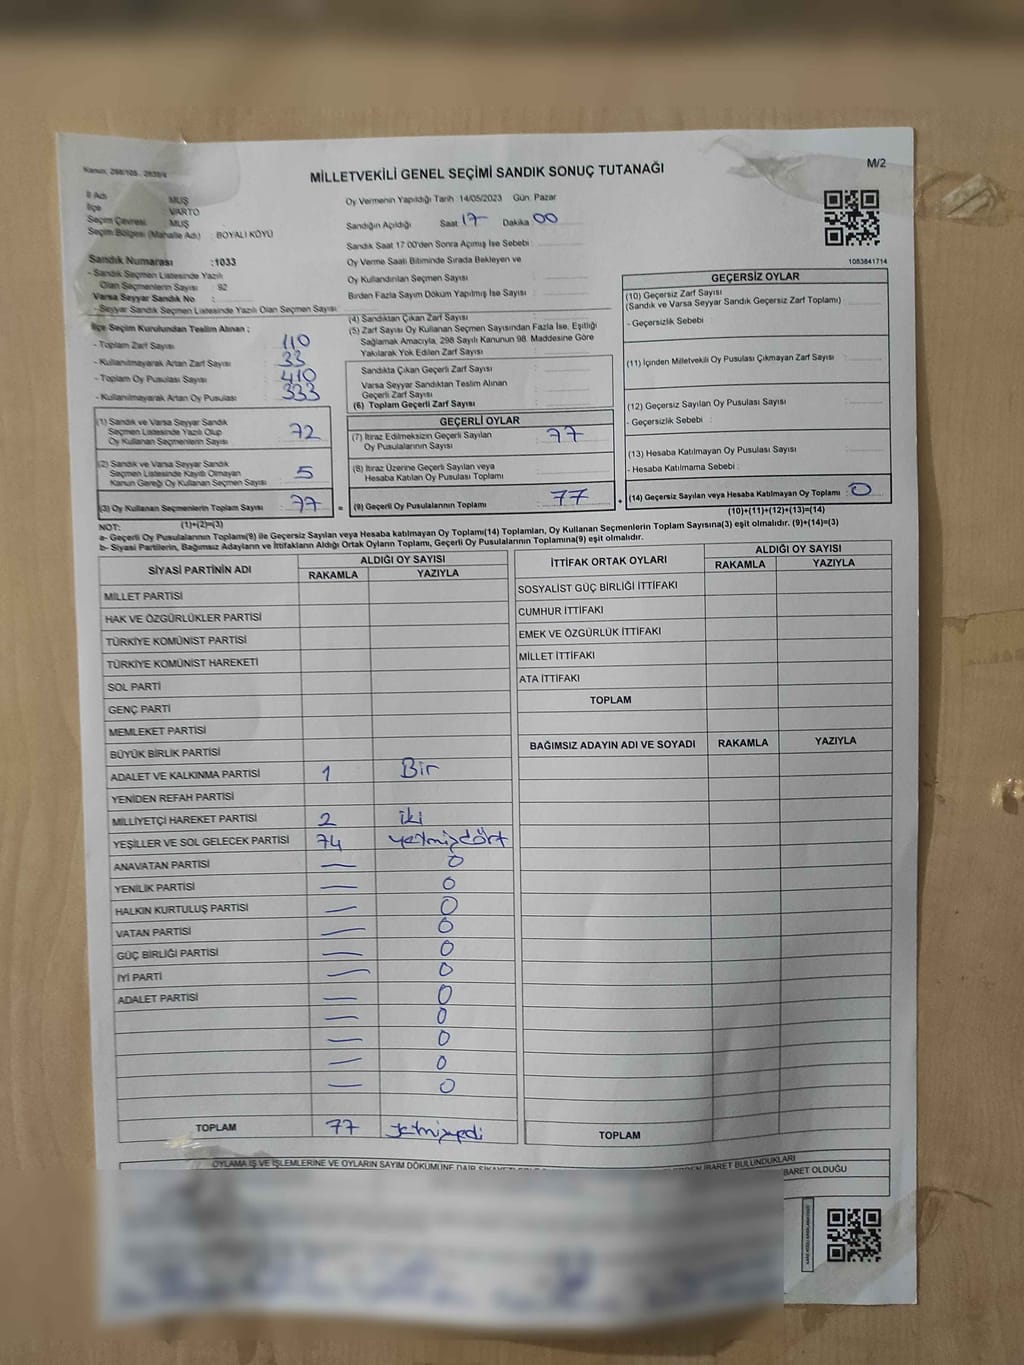 Kanun, 298/105 , 2839/4
M/2
MİLLETVEKİLİ GENEL SEÇİMİ SANDIK SONUÇ TUTANAĞI
İl Adı : MUŞ
İlçe : VARTO
Seçim Çevresi : MUŞ
Seçim Bölgesi (Mahalle Adı) : BOYALI KÖYÜ
Oy Vermenin Yapıldığı Tarih: 14/05/2023 Gün: Pazar
Sandığın Açıldığı Saat 17 Dakika 00
Sandık Saat 17:00'den Sonra Açımış İse Sebebi :
Oy Verme Saati Bitiminde Sırada Bekleyen ve
Oy Kullandırılan Seçmen Sayısı :
Birden Fazla Sayım Döküm Yapılmış İse Sayısı :
1083841714
Sandık Numarası :1033
- Sandık Seçmen Listesinde Yazılı
Olan Seçmenlerin Sayısı : 92
Varsa Seyyar Sandık No :
- Seyyar Sandık Seçmen Listesinde Yazılı Olan Seçmen Sayısı :
İlçe Seçim Kurulundan Teslim Alınan ;
- Toplam Zarf Sayısı : 110
- Kullanılmayarak Artan Zarf Sayısı : 33
- Toplam Oy Pusulası Sayısı : 410
- Kullanılmayarak Artan Oy Pusulası : 333
(1) Sandık ve Varsa Seyyar Sandık
Seçmen Listesinde Yazılı Olup
Oy Kullanan Seçmenlerin Sayısı : 72
(2) Sandık ve Varsa Seyyar Sandık
Seçmen Listesinde Kayıtlı Olmayan
Kanun Gereği Oy Kullanan Seçmen Sayısı : 5
(3) Oy Kullanan Seçmenlerin Toplam Sayısı : 77
(1)+(2)=(3)
(4) Sandıktan Çıkan Zarf Sayısı :
(5) Zarf Sayısı Oy Kullanan Seçmen Sayısından Fazla İse, Eşitliği
Sağlamak Amacıyla, 298 Sayılı Kanunun 98. Maddesine Göre
Yakılarak Yok Edilen Zarf Sayısı :
Sandıkta Çıkan Geçerli Zarf Sayısı :
Varsa Seyyar Sandıktan Teslim Alınan
Geçerli Zarf Sayısı :
(6) Toplam Geçerli Zarf Sayısı :
GEÇERLİ OYLAR
(7) İtiraz Edilmeksizin Geçerli Sayılan
Oy Pusulalarının Sayısı : 77
(8) İtiraz Üzerine Geçerli Sayılan veya
Hesaba Katılan Oy Pusulası Toplamı :
= (9) Geçerli Oy Pusulalarının Toplamı : 77
GEÇERSİZ OYLAR
(10) Geçersiz Zarf Sayısı
(Sandık ve Varsa Seyyar Sandık Geçersiz Zarf Toplamı) :
- Geçersizlik Sebebi :
(11) İçinden Milletvekili Oy Pusulası Çıkmayan Zarf Sayısı :
(12) Geçersiz Sayılan Oy Pusulası Sayısı :
- Geçersizlik Sebebi :
(13) Hesaba Katılmayan Oy Pusulası Sayısı :
- Hesaba Katılmama Sebebi :
+ (14) Geçersiz Sayılan veya Hesaba Katılmayan Oy Toplamı : 0
(10)+(11)+(12)+(13)=(14)
NOT:
a- Geçerli Oy Pusulalarının Toplamı(9) ile Geçersiz Sayılan veya Hesaba katılmayan Oy Toplamı(14) Toplamları, Oy Kullanan Seçmenlerin Toplam Sayısına(3) eşit olmalıdır. (9)+(14)=(3)
b- Siyasi Partilerin, Bağımsız Adayların ve İttifakların Aldığı Ortak Oyların Toplamı, Geçerli Oy Pusulalarının Toplamına(9) eşit olmalıdır.
SİYASİ PARTİNİN ADI ALDIĞI OY SAYISI
RAKAMLA YAZIYLA
MİLLET PARTİSİ
HAK VE ÖZGÜRLÜKLER PARTİSİ
TÜRKİYE KOMÜNİST PARTİSİ
TÜRKİYE KOMÜNİST HAREKETİ
SOL PARTİ
GENÇ PARTİ
MEMLEKET PARTİSİ
BÜYÜK BİRLİK PARTİSİ
ADALET VE KALKINMA PARTİSİ 1 Bir
YENİDEN REFAH PARTİSİ
MİLLİYETÇİ HAREKET PARTİSİ 2 iki
YEŞİLLER VE SOL GELECEK PARTİSİ 74 yetmişdört
ANAVATAN PARTİSİ — 0
YENİLİK PARTİSİ — 0
HALKIN KURTULUŞ PARTİSİ — 0
VATAN PARTİSİ — 0
GÜÇ BİRLİĞİ PARTİSİ — 0
İYİ PARTİ — 0
ADALET PARTİSİ — 0
— 0
— 0
— 0
— 0
TOPLAM 77 yetmişyedi
İTTİFAK ORTAK OYLARI ALDIĞI OY SAYISI
RAKAMLA YAZIYLA
SOSYALİST GÜÇ BİRLİĞİ İTTİFAKI
CUMHUR İTTİFAKI
EMEK VE ÖZGÜRLÜK İTTİFAKI
MİLLET İTTİFAKI
ATA İTTİFAKI
TOPLAM
BAĞIMSIZ ADAYIN ADI VE SOYADI RAKAMLA YAZIYLA
TOPLAM
OYLAMA İŞ VE İŞLEMLERİNE VE OYLARIN SAYIM DÖKÜMÜNE DAİR
BULUNDUKLARI
BARET OLDUĞU